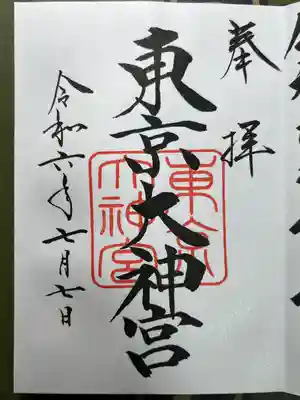 奉拝
東京大神宮
東京大神宮
令和六年七月七日